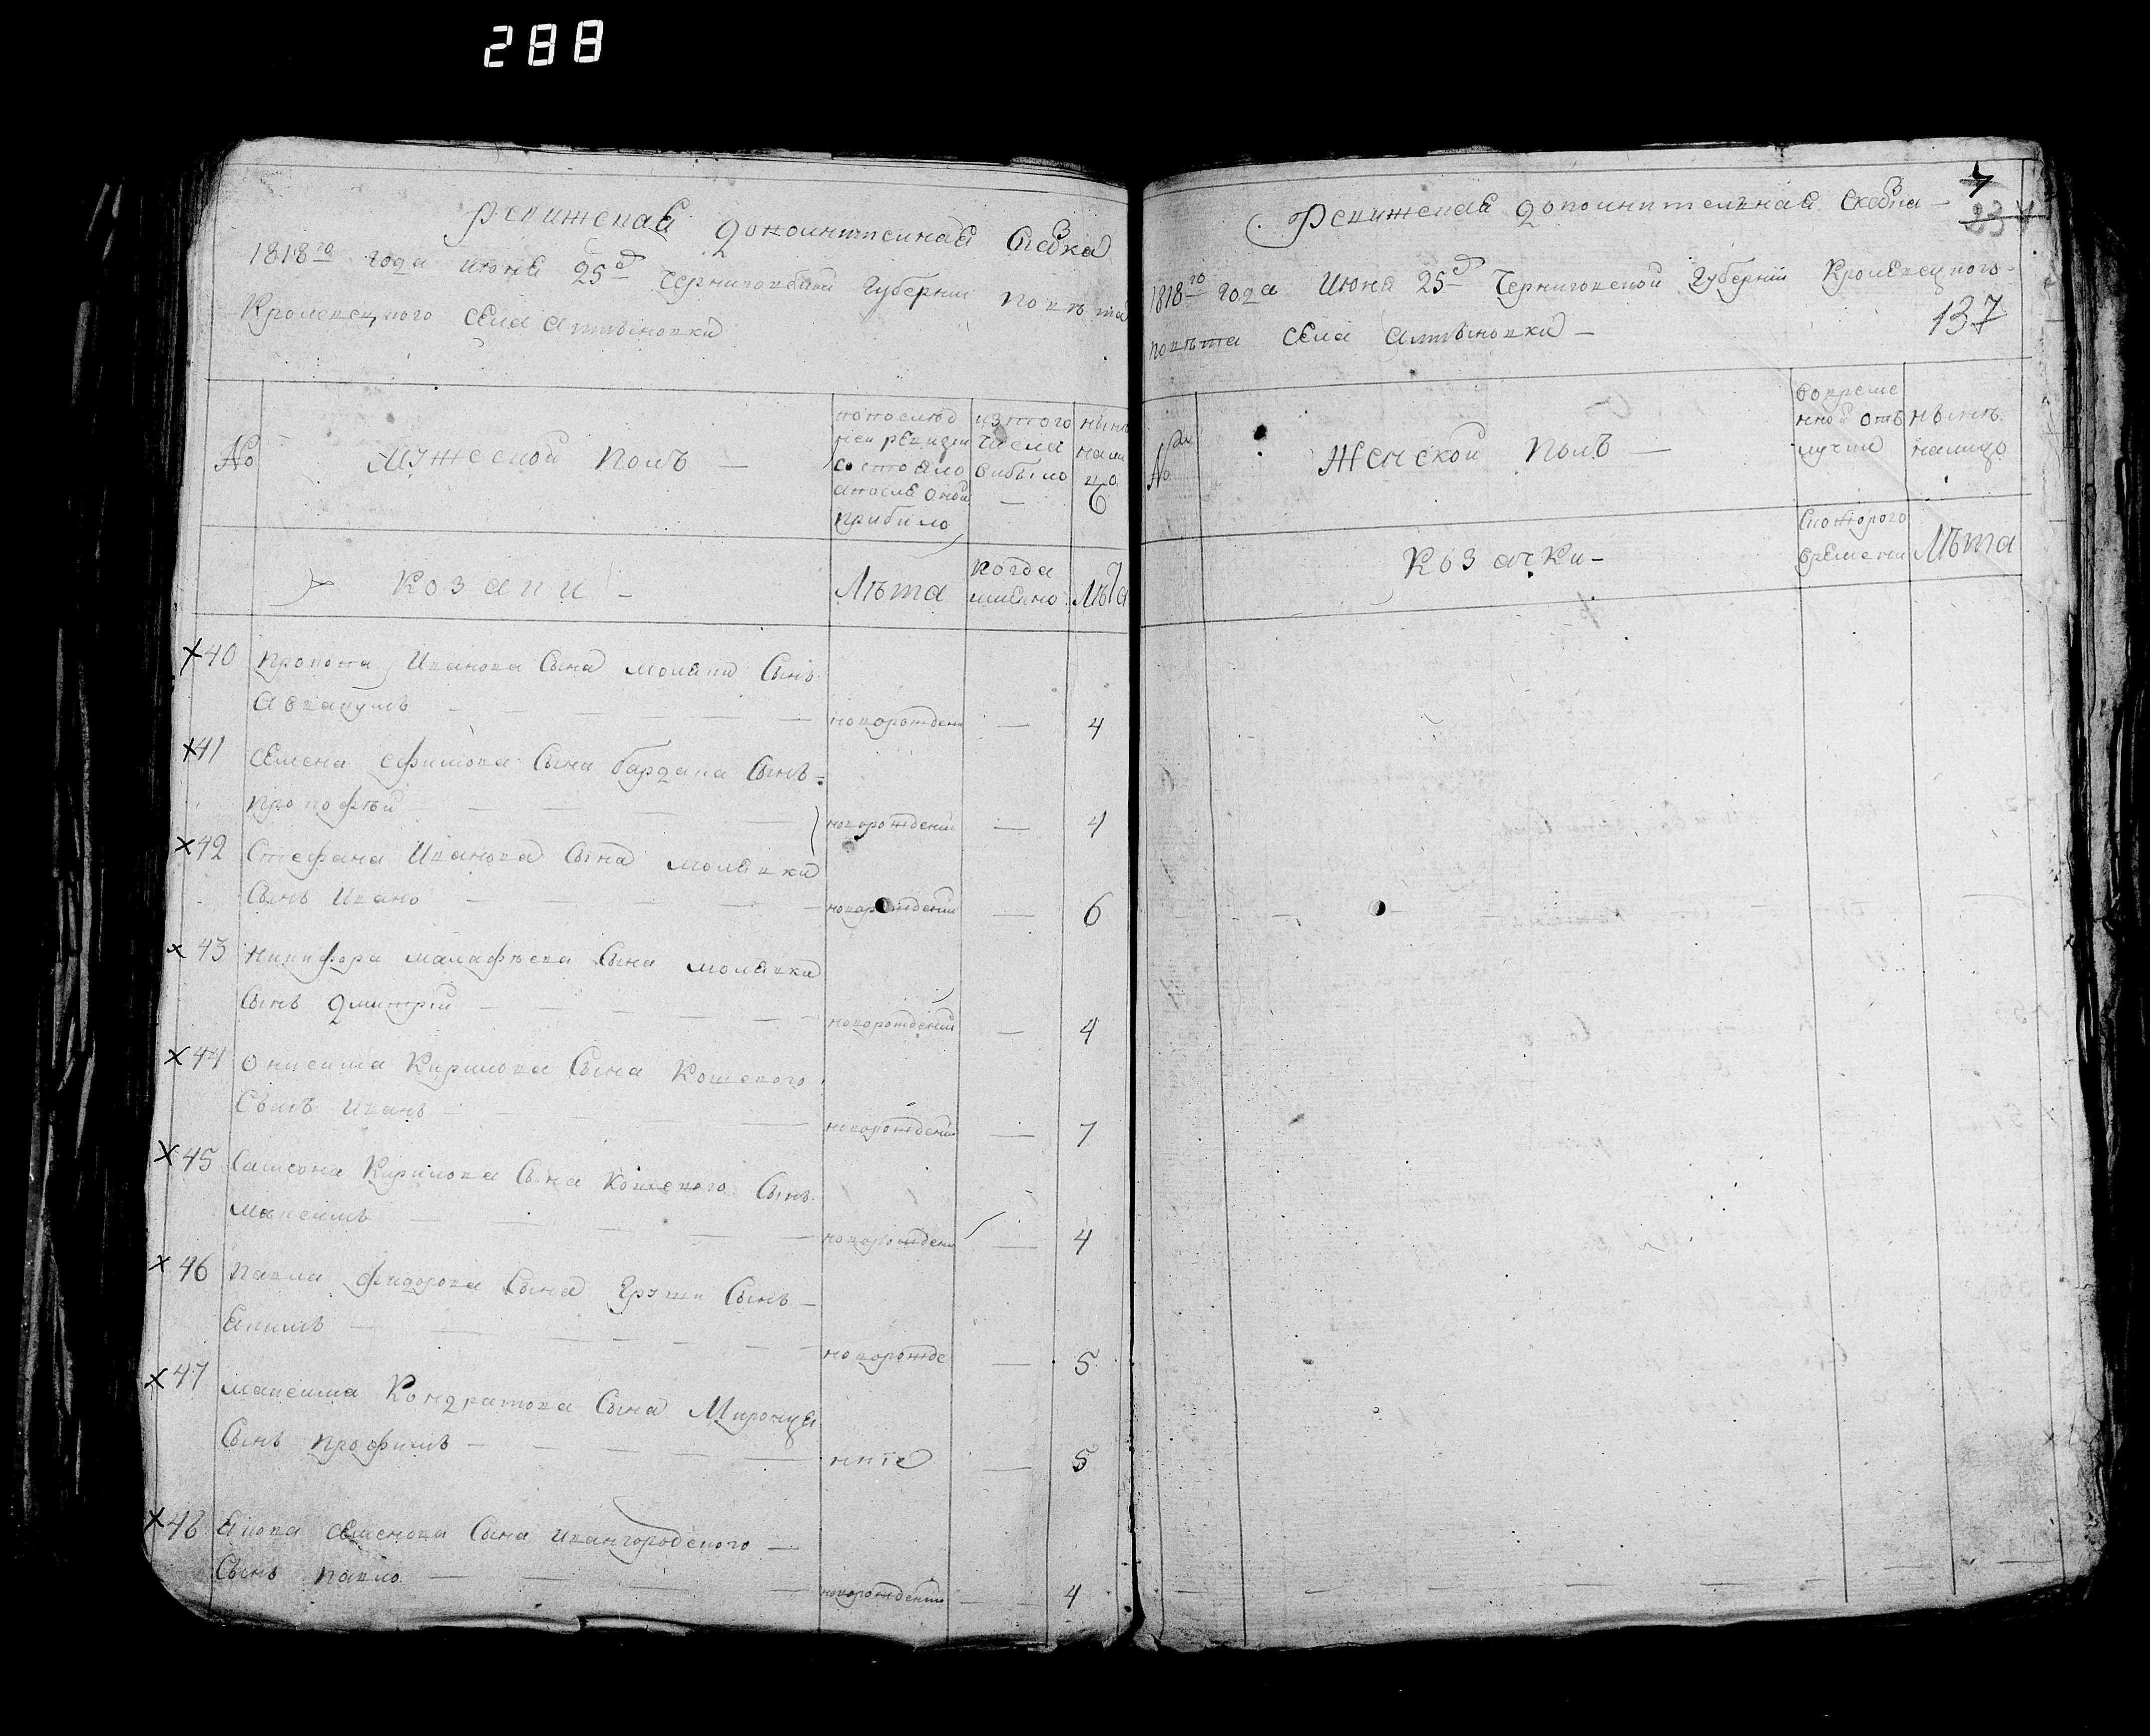 288
Ревижская дополнителная Сказка
1818го года июня 25д Черниговской Губернии повѣта
Кролевецкого села алтыновки
№
Мужеской полъ —
по послѣд
ней ревизіи
состояло
а после оной
прибило
изтого
числа
вибыло
—
нынѣ
нали
цо
Козаки —
Лѣта
когда
имянно
Лѣта
40 Прокопа Иванова сына моляки сынъ
Авкакумъ — новорожден — 4
41 Семена ефимова сына бардака сынъ
Прокофѣй — новорожденни — 4
42 Стефана Иванова сына молявки
Сынъ Ивано — новорожденни — 6
43 Никифора малафѣева сына молявки
Сынъ Дмитрій — новорожденни — 4
44 Онисима Кирилова сына Кошевого
Сынъ Иванъ — новорожденни — 7
45 Самсона Кирилова сына Кошевого сынъ
Максимъ — новорожденн — 4
46 Павла Фидорова сына Груши сынъ —
Якимъ — новорожде — 5
47 Максима Кондратова сына Миронця
Сынъ Трофимъ — — 5
48 Якова Семенова сына ивангородского —
Сынъ Павло — новорожденни — 4
7
Ревижская дополнителная Сказка —
1818го года Июня 25д Черниговской Губерніи Кролевецкого
137
повѣта села алтыновки —
№
Женской полъ —
вовреме
нной отъ
лучке
нынѣ
налицо
Козачки —
Скоторого
времени
Лѣта